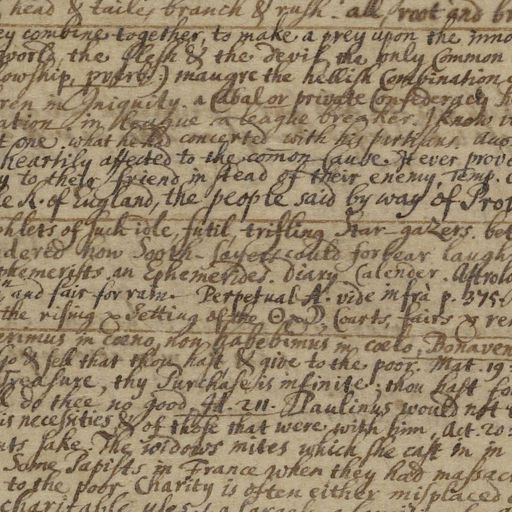 head & tailes, branch & rush. all, root and br
ey combine together, to make a prey upon the inno
world, the flesh & the devil the only Common
lowship, proverb:) maugre the hellish Combination o
ren in Iniquity. a Cabal or private Confederacy
ation in league a league breaker. I know
t one what he had concerted with his partisans.
heartily affected to the comõn Cause. It ever prov
y to their friend in stead of their enemy, Temp.
e K. of England, the people said by way of Pro
phlets of such idle, futil trifling Star-gazers, bet
dered how Sooth-Sayers could forbear laugh
phemerists, an Ephemerides. Diary Calender. Astrolo
and fair for rain. Perpetual A. vide infrà p. 375.
the rising & Setting of the ☉ & ☽, Courts, fairs & re
erimus in cœno, non habebimus in cœlo, Bonaven
go & sell that thou hast & give to the poor. Mat. 19
treasure, thy Purchase is infinite; thou hast fo
l do thee no good, 4d. 211. Paulinus would not
is necessities & of those that were with him, Act. 20
nts sake. The widows mites which she cast in
Some Papists in France when they had massac
to the poor Charity is often either misplaced
charitable uses